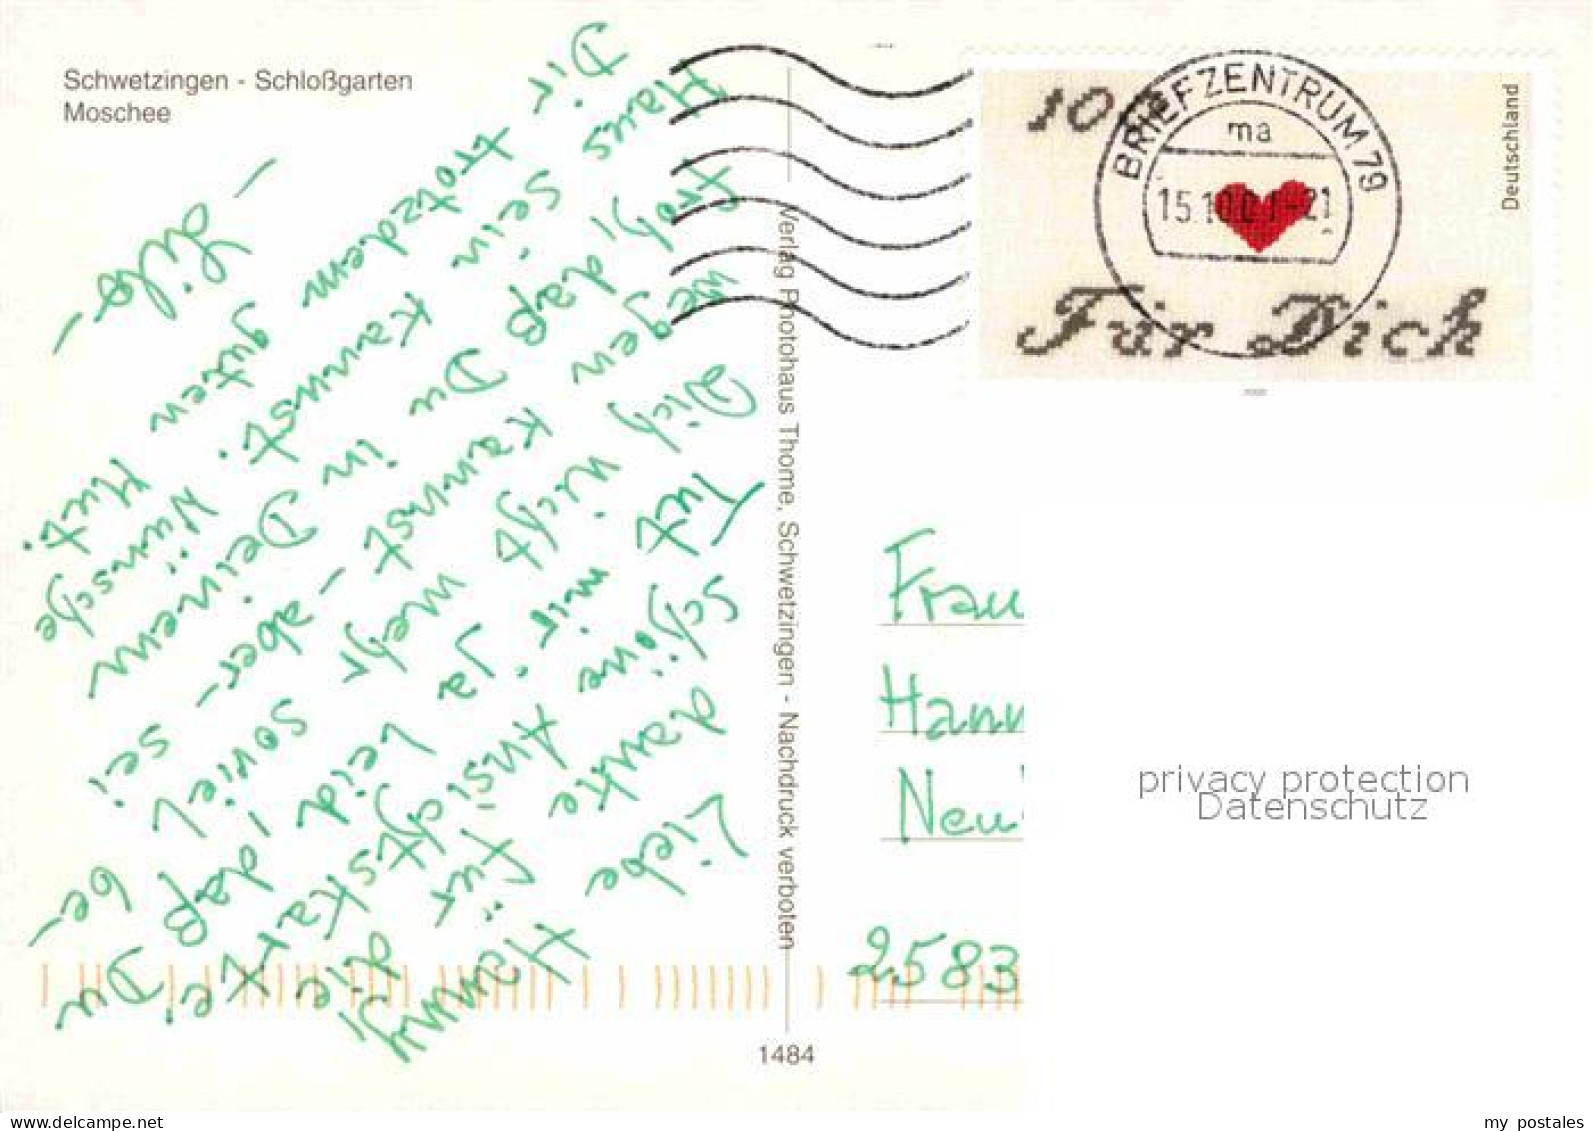 Schwetzingen - Schloßgarten
Moschee
Liebe Hanny,
danke für die
schöne Ansichtskarte!
Tut mir ja Leid, daß Du
Dich nicht mehr soviel be-
wegen kannst - aber sei
froh, daß Du in Deinem
Haus sein kannst. Wünsche
Dir trotzdem guten Mut.
- Lilo -
Verlag Photohaus Thome, Schwetzingen - Nachdruck verboten
1484
Deutschland
Für Dich
BRIEFZENTRUM 79
ma
Frau
Hann
Neu
2583
privacy protection
Datenschutz
www.delcampe.net
my_postales